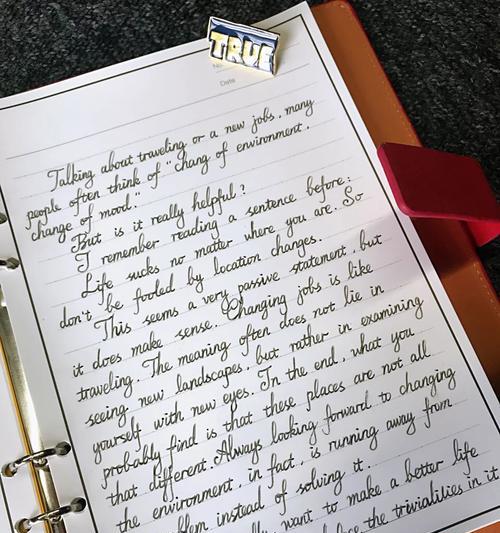 TRUE
No.
Date
Talking about traveling or a new jobs, many
people often think of "chang of environment,
change of mood."
But is it really helpful?
I remember reading a sentence before:
Life sucks no matter where you are. So
don't be fooled by location changes.
This seems a very passive statement, but
it does make sense. Changing jobs is like
traveling. The meaning often does not lie in
seeing new landscapes, but rather in examining
yourself with new eyes. In the end, what you
probably find is that these places are not all
that different. Always looking forward to changing
the environment, in fact, is running away from
instead of solving it.
want to make a better life
the trivialities in it